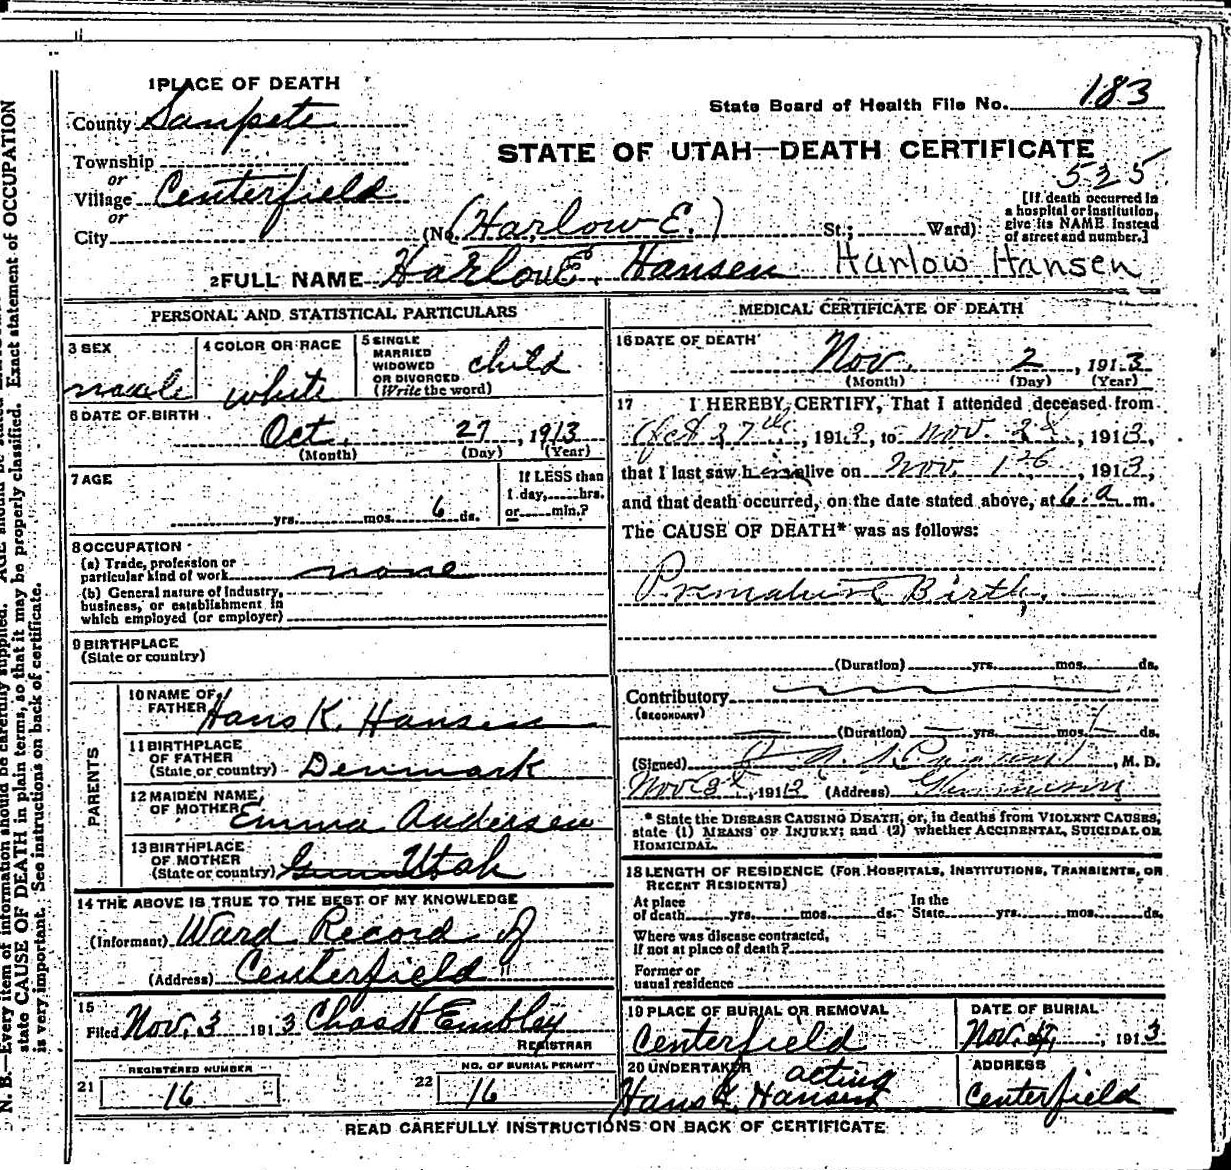 1 PLACE OF DEATH
State Board of Health File No. 183
County Sanpete
STATE OF UTAH—DEATH CERTIFICATE
525
Township
or
Village Centerfield
or
City
(No. (Harlow E.) St.; Ward)
[If death occurred in
a hospital or institution,
give its NAME instead
of street and number.]
2 FULL NAME Harlow E. Hansen Harlow Hansen
PERSONAL AND STATISTICAL PARTICULARS
3 SEX
male
4 COLOR OR RACE
white
5 SINGLE
MARRIED
WIDOWED
OR DIVORCED
(Write the word)
child
6 DATE OF BIRTH
Oct. 27, 1913
(Month) (Day) (Year)
7 AGE
yrs. mos. 6 ds.
If LESS than
1 day, hrs.
or min.?
8 OCCUPATION
(a) Trade, profession or
particular kind of work none
(b) General nature of Industry,
business, or establishment in
which employed (or employer)
9 BIRTHPLACE
(State or country)
PARENTS
10 NAME OF
FATHER Hans K. Hansen
11 BIRTHPLACE
OF FATHER
(State or country) Denmark
12 MAIDEN NAME
OF MOTHER Emma Andersen
13 BIRTHPLACE
OF MOTHER
(State or country) Utah
14 THE ABOVE IS TRUE TO THE BEST OF MY KNOWLEDGE
(Informant) Ward Record of
(Address) Centerfield
15
Filed Nov. 3 1913 Chas H Embley
REGISTRAR
REGISTERED NUMBER
21 16
NO. OF BURIAL PERMIT
22 16
MEDICAL CERTIFICATE OF DEATH
16 DATE OF DEATH
Nov. 2, 1913
(Month) (Day) (Year)
17 I HEREBY CERTIFY, That I attended deceased from
Oct 27th, 1913, to Nov. 2d, 1913,
that I last saw him alive on Nov. 1st, 1913,
and that death occurred, on the date stated above, at 6 a m.
The CAUSE OF DEATH* was as follows:
Premature Birth.
(Duration) yrs. mos. ds.
Contributory
(SECONDARY)
(Duration) yrs. mos. ds.
(Signed) , M. D.
Nov 3d, 1913 (Address) Gunnison
* State the DISEASE CAUSING DEATH, or, in deaths from VIOLENT CAUSES,
state (1) MEANS OF INJURY; and (2) whether ACCIDENTAL, SUICIDAL OR
HOMICIDAL.
18 LENGTH OF RESIDENCE (FOR HOSPITALS, INSTITUTIONS, TRANSIENTS, OR
RECENT RESIDENTS)
At place In the
of death yrs. mos. ds. State yrs. mos. ds.
Where was disease contracted,
If not at place of death?
Former or
usual residence
19 PLACE OF BURIAL OR REMOVAL
Centerfield
DATE OF BURIAL
Nov. 4, 1913
20 UNDERTAKER acting
Hans K. Hansen
ADDRESS
Centerfield
READ CAREFULLY INSTRUCTIONS ON BACK OF CERTIFICATE
N. B.—Every item of information should be carefully supplied. AGE should be stated
state CAUSE OF DEATH in plain terms, so that it may be properly classified. Exact statement of OCCUPATION
is very important. See instructions on back of certificate.